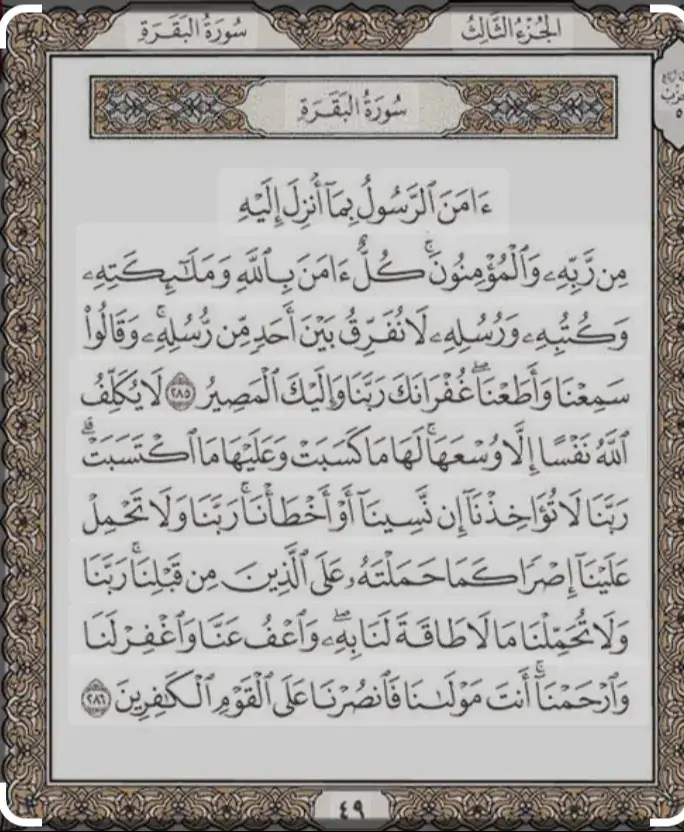 الجُزْءُ الثَّالِثُ
سُورَةُ البَقَرَةِ
سُورَةُ البَقَرَةِ
ءَامَنَ ٱلرَّسُولُ بِمَآ أُنزِلَ إِلَيْهِ
مِن رَّبِّهِۦ وَٱلْمُؤْمِنُونَۚ كُلٌّ ءَامَنَ بِٱللَّهِ وَمَلَٰٓئِكَتِهِۦ
وَكُتُبِهِۦ وَرُسُلِهِۦ لَا نُفَرِّقُ بَيْنَ أَحَدٍ مِّن رُّسُلِهِۦۚ وَقَالُوا۟
سَمِعْنَا وَأَطَعْنَاۖ غُفْرَانَكَ رَبَّنَا وَإِلَيْكَ ٱلْمَصِيرُ ٢٨٥ لَا يُكَلِّفُ
ٱللَّهُ نَفْسًا إِلَّا وُسْعَهَاۚ لَهَا مَا كَسَبَتْ وَعَلَيْهَا مَا ٱكْتَسَبَتْۗ
رَبَّنَا لَا تُؤَاخِذْنَآ إِن نَّسِينَآ أَوْ أَخْطَأْنَاۚ رَبَّنَا وَلَا تَحْمِلْ
عَلَيْنَآ إِصْرًا كَمَا حَمَلْتَهُۥ عَلَى ٱلَّذِينَ مِن قَبْلِنَاۚ رَبَّنَا
وَلَا تُحَمِّلْنَا مَا لَا طَاقَةَ لَنَا بِهِۦۖ وَٱعْفُ عَنَّا وَٱغْفِرْ لَنَا
وَٱرْحَمْنَآۚ أَنتَ مَوْلَىٰنَا فَٱنصُرْنَا عَلَى ٱلْقَوْمِ ٱلْكَٰفِرِينَ ٢٨٦
٤٩